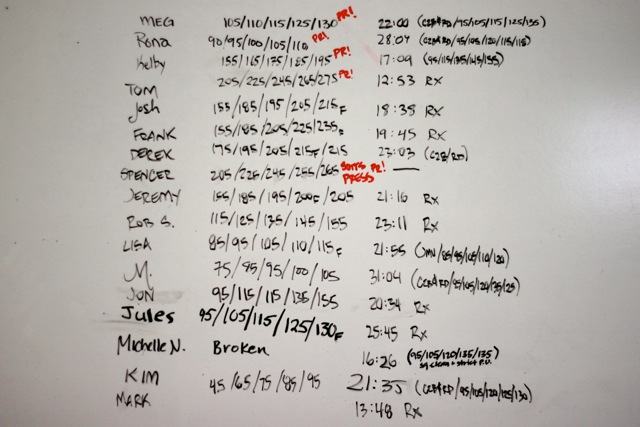 MEG 105/110/115/125/130 PR! 22:00 (C2B+RD/95/105/115/125/135)
Rona 90/95/100/105/110 PR! 28:04 (/95/105/120/115/115)
Kelby 155/165/175/185/195 PR! 17:09 (95/115/135/145/155)
TOM 205/225/245/265/275 PR! 12:53 RX
Josh 155/185/195/205/215F 18:35 RX
FRANK 155/185/205/225/235F 19:45 RX
DEREK 175/195/205/215F/215 23:03 (C2B/RD)
SPENCER 205/225/245/255/265 SOTS PRESS PR! —
JEREMY 155/185/195/200F/205 21:16 Rx
ROB S. 115/125/135/145/155 23:11 Rx
LISA 85/95/105/110/115F 21:55 (/85/95/105/110/120)
M. 75/85/95/100/105 31:04 (/95/105/120/125/125)
JON 95/115/115/135/155 20:34 Rx
Jules 95/105/115/125/130F 25:45 Rx
Michelle N. Broken 16:26 (95/105/120/135/135)
KIM 45/65/75/85/95 21:35 (/95/105/120/125/130)
MARK 13:48 Rx